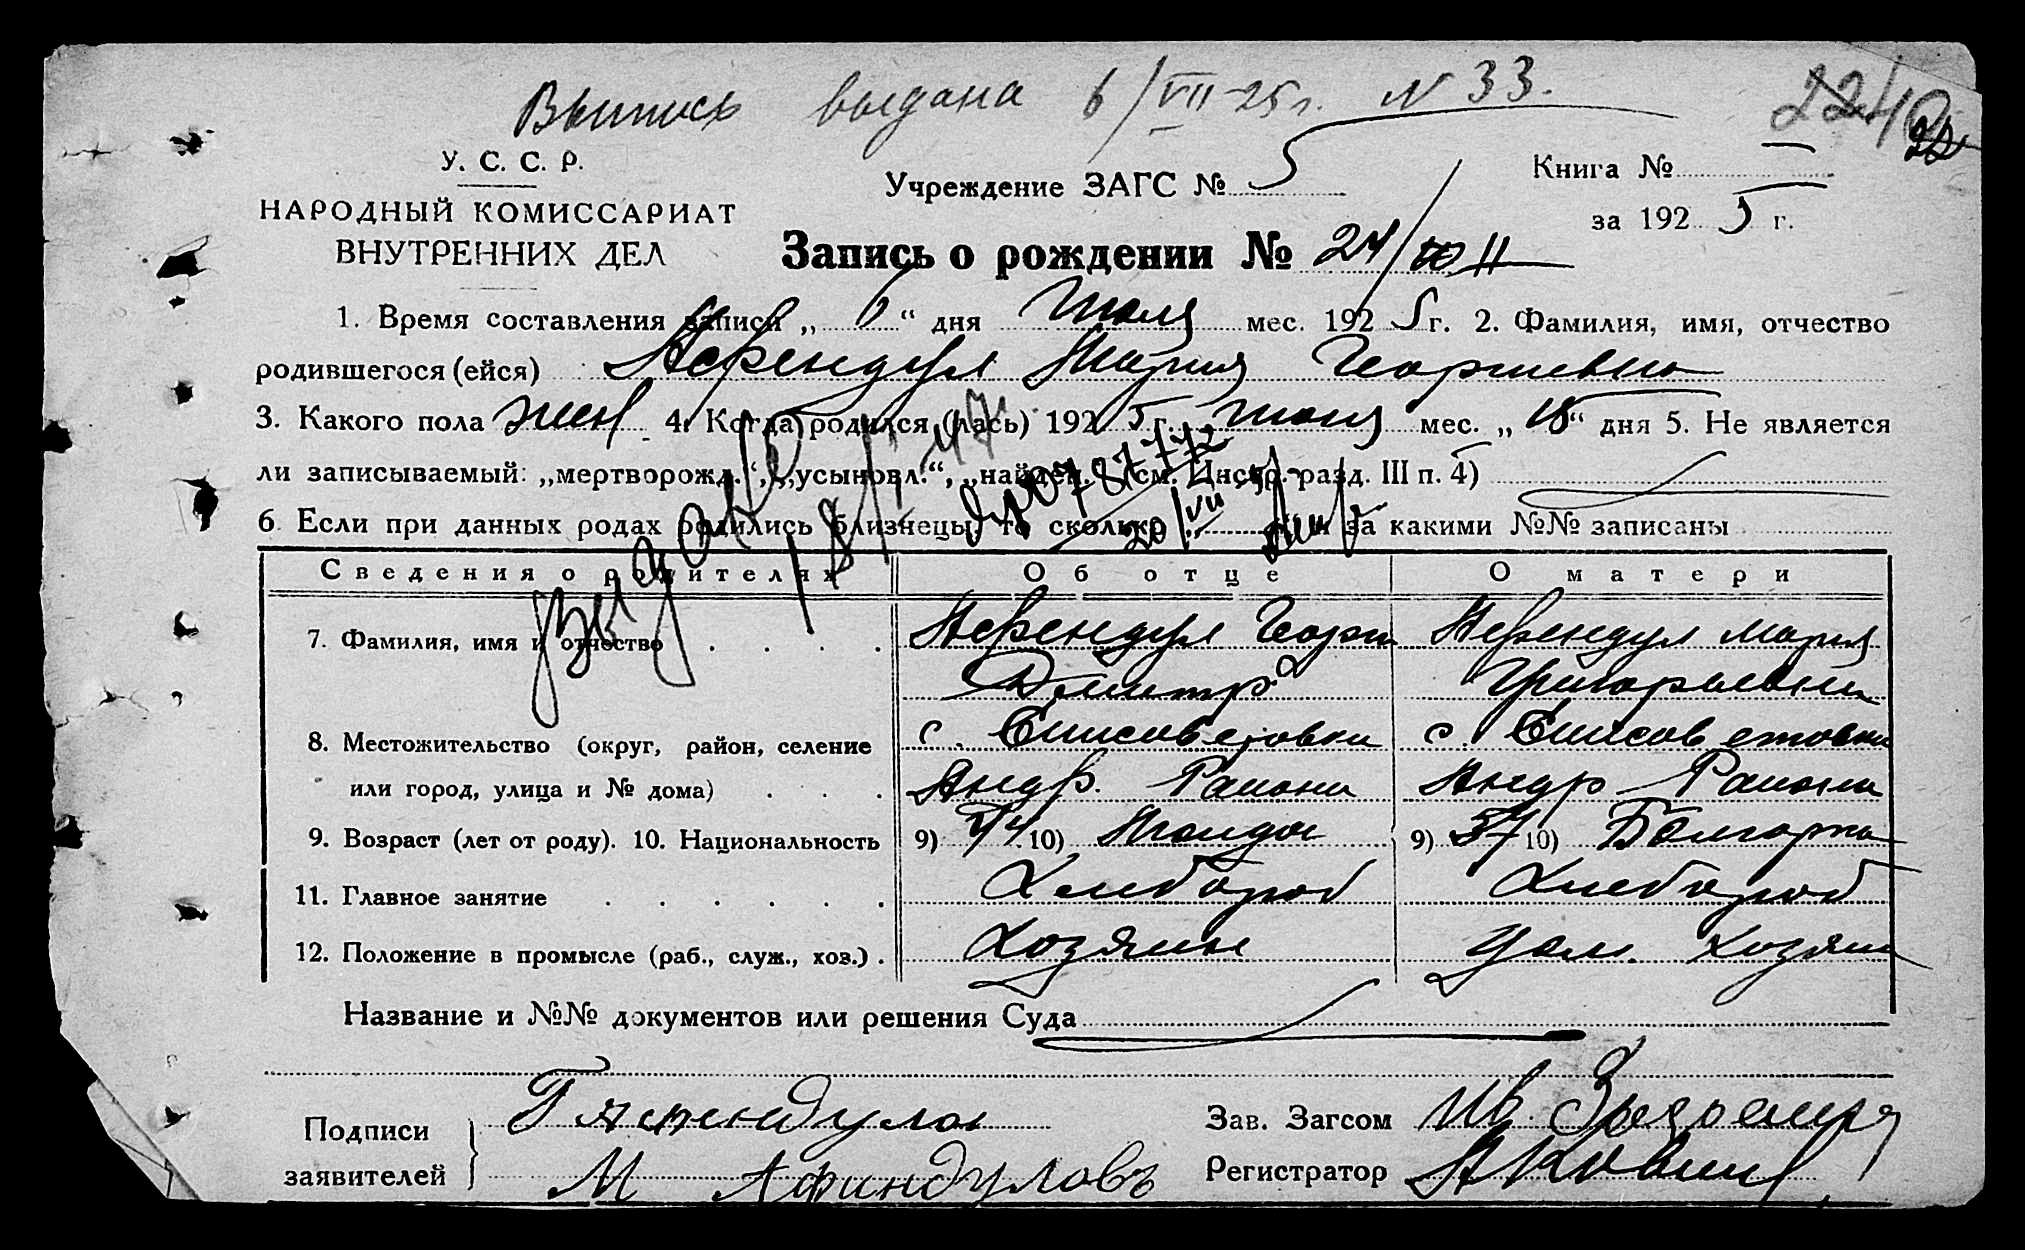 Выпись выдана 6/VII-25г. N 33.
У. С. С. Р.
НАРОДНЫЙ КОМИССАРИАТ
ВНУТРЕННИХ ДЕЛ
Учреждение ЗАГС № 5
Книга №
за 192 5 г.
Запись о рождении № 24/
1. Время составления записи „ 6 “ дня Июля мес. 192 5 г. 2. Фамилия, имя, отчество
родившегося (ейся) Афендул Мария Георгиевна
3. Какого пола жен 4. Когда родился (лась) 192 5 г. июня мес. „ 18 “ дня 5. Не является
ли записываемый: „мертворожд.“, „усыновл.“, „найден.“ (см. Инстр. разд. III п. 4)
6. Если при данных родах родились близнецы, то сколько и за какими №№ записаны
Сведения о родителях Об отце О матери
7. Фамилия, имя и отчество Афендул Георги Афендул Мария
Дмитр Григорьевна
8. Местожительство (округ, район, селение с. Елисаветовки с. Елисаветовки
или город, улица и № дома) Андр. Района Андр Района
9. Возраст (лет от роду). 10. Национальность 9) 44 10) 9) 37 10) Болгарка
11. Главное занятие Хлебороб Хлебороб
12. Положение в промысле (раб., служ., хоз.) Хозяин Хозяин
Название и №№ документов или решения Суда
Подписи
заявителей
М Афиндуловъ
Зав. Загсом
Регистратор